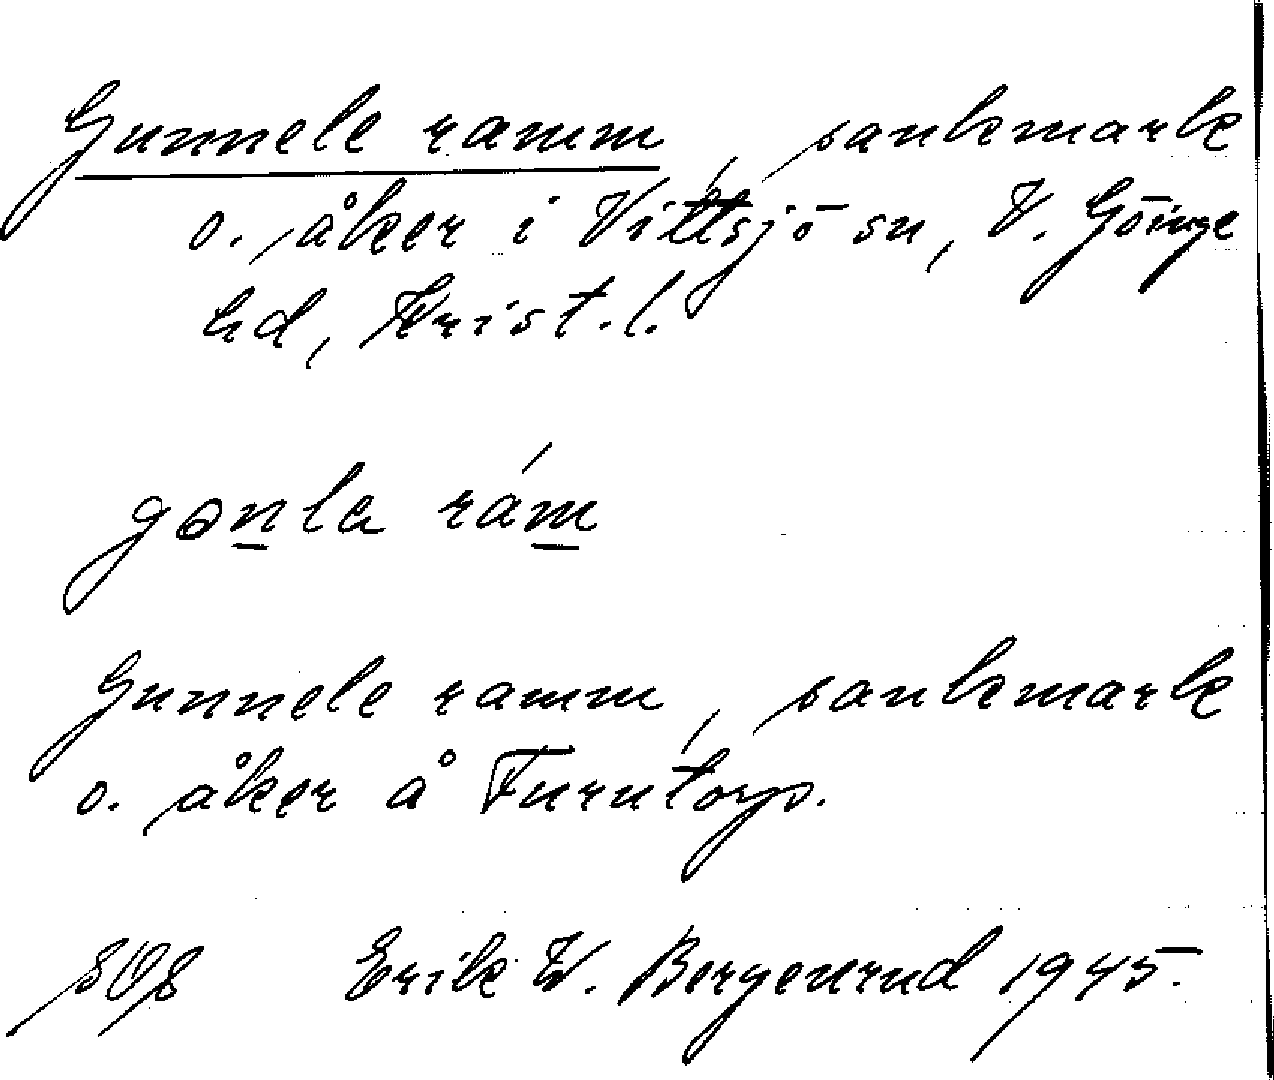 Gunnele ramm, sankmark
o. åker i Vittsjö sn, V. Göinge
hd, Krist. l.
gɵnla rám
Gunnele ramm, sankmark
o. åker å Furutorp.
SOS Erik W. Bergenrud 1945.